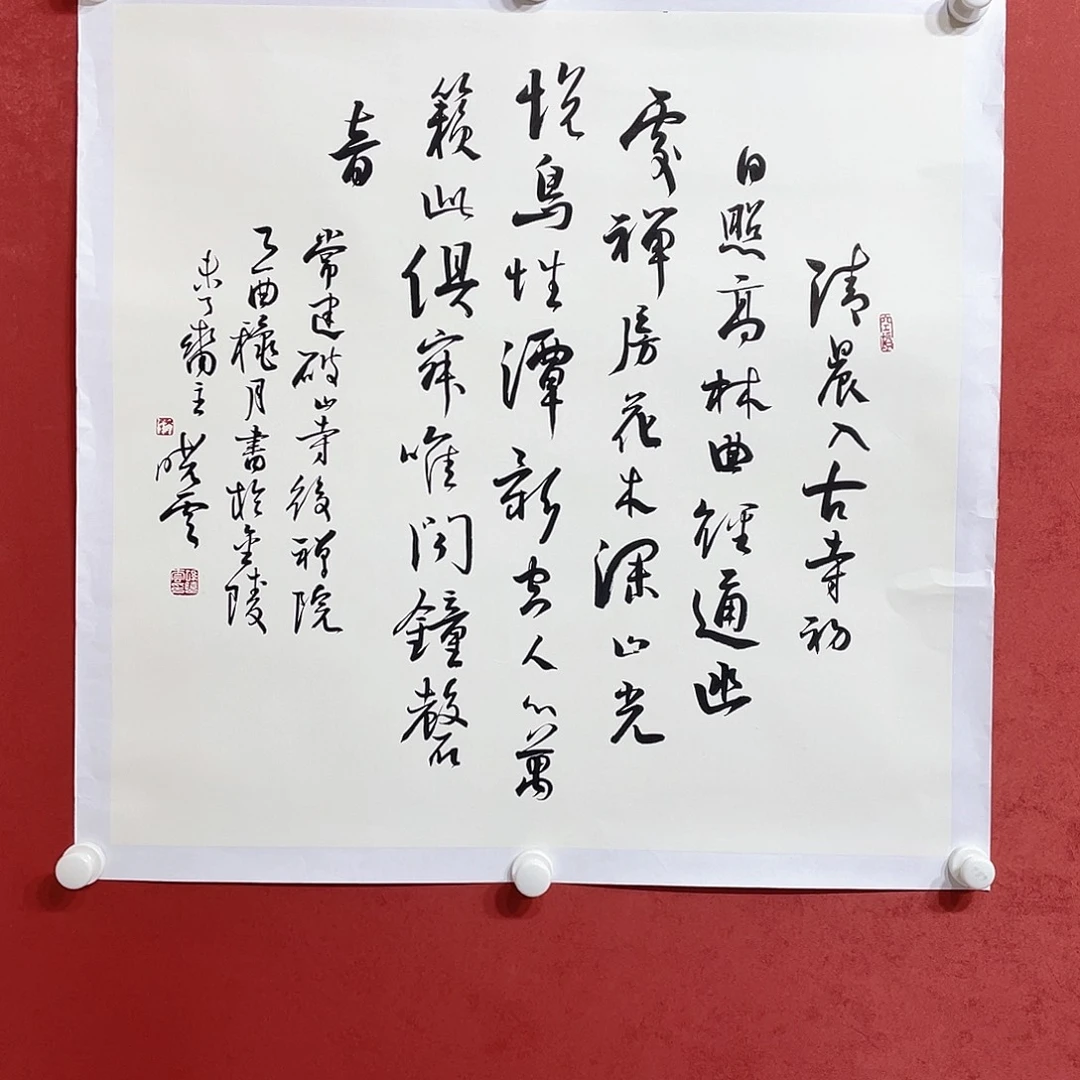 清晨入古寺初
日照高林曲径通幽
處禅房花木深山光
悦鳥性潭影空人心萬
籟此俱寂唯聞鐘磬
音
常建破山寺後禅院
乙酉穐月書於金陵
未了斋主
晓雲